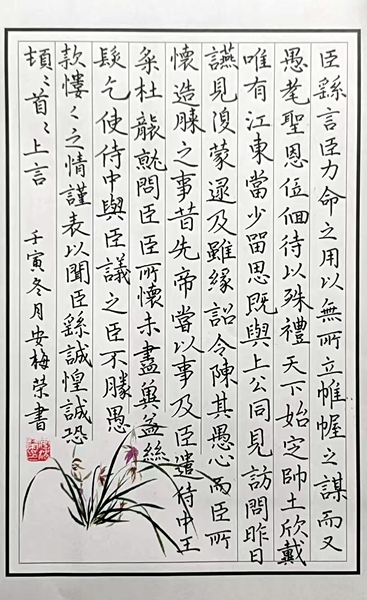 臣繇言臣力命之用以無所立帷幄之謀而又
愚耄聖恩低佪待以殊禮天下始定帥土欣戴
唯有江東當少留思既與上公同見訪問昨日
讌見復蒙逮及雖緣詔令陳其愚心而臣所
懷造膝之事昔先帝嘗以事及臣遣侍中王
粲杜襲就問臣臣所懷未盡冀益絲
髮乞使侍中與臣議之臣不勝愚
款慺々之情謹表以聞臣繇誠惶誠恐
頓々首々上言 壬寅冬月安梅榮書